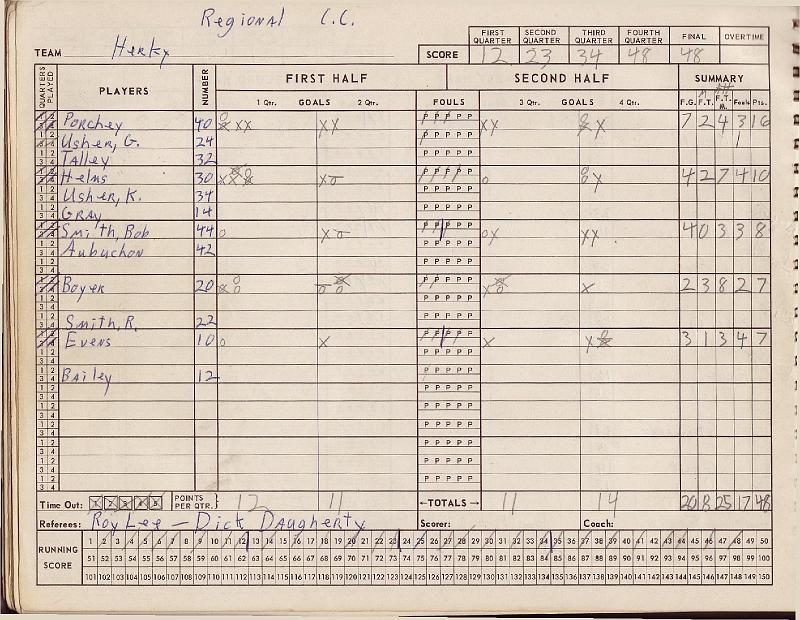 Regional C.C.
FIRST QUARTER SECOND QUARTER THIRD QUARTER FOURTH QUARTER FINAL OVERTIME
TEAM Herky SCORE 12 23 34 48 48
QUARTERS PLAYED PLAYERS NUMBER FIRST HALF SECOND HALF SUMMARY
1 Qtr. GOALS 2 Qtr. FOULS 3 Qtr. GOALS 4 Qtr. F.G. F.T. F.T. M. Fouls Pts.
Porchey 40 P P P P P 7 2 4 3 16
Usher, G. 24
Talley 32
Helms 30 P P P P P 4 2 7 4 10
Usher, K. 34
Gray 14
Smith, Bob 44 P P P P P 4 0 3 3 8
Aubuchon 42
Boyer 20 P P P P P 2 3 8 2 7
Smith, R. 22
Evens 10 P P P P P 3 1 3 4 7
Bailey 12
Time Out: 1 2 3 4 5 POINTS PER QTR. 12 11 ←TOTALS→ 11 14 20 8 25 17 48
Referees: Roy Lee – Dick Daugherty Scorer: Coach:
1 2 3 4 5 6 7 8 9 10 11 12 13 14 15 16 17 18 19 20 21 22 23 24 25 26 27 28 29 30 31 32 33 34 35 36 37 38 39 40 41 42 43 44 45 46 47 48 49 50
RUNNING SCORE 51 52 53 54 55 56 57 58 59 60 61 62 63 64 65 66 67 68 69 70 71 72 73 74 75 76 77 78 79 80 81 82 83 84 85 86 87 88 89 90 91 92 93 94 95 96 97 98 99 100
101 102 103 104 105 106 107 108 109 110 111 112 113 114 115 116 117 118 119 120 121 122 123 124 125 126 127 128 129 130 131 132 133 134 135 136 137 138 139 140 141 142 143 144 145 146 147 148 149 150